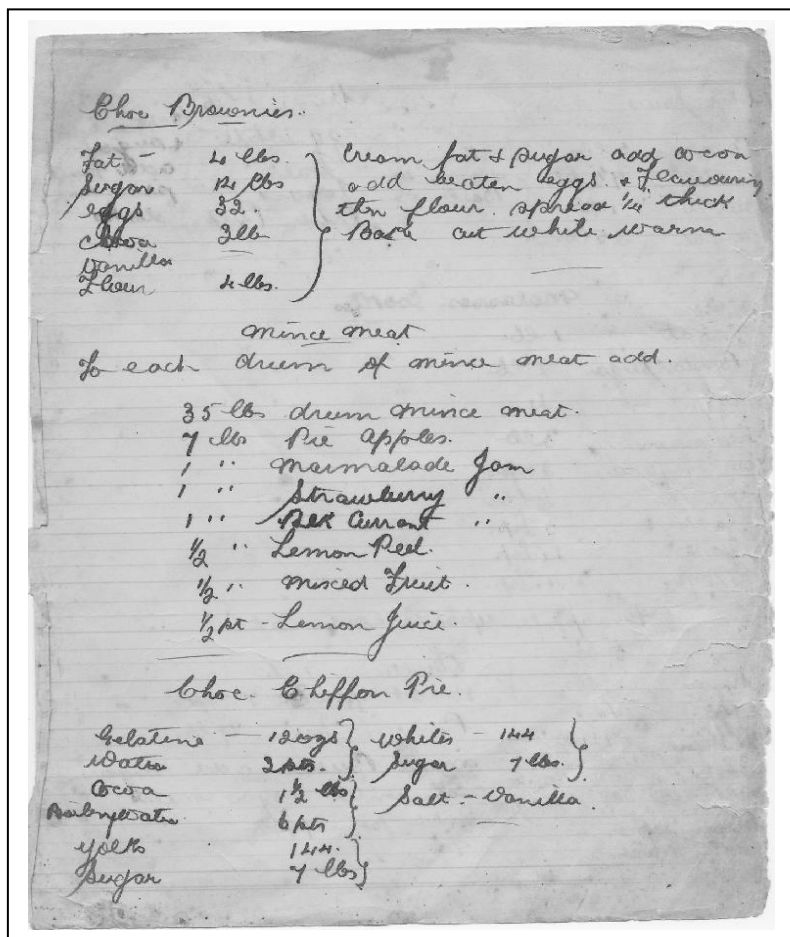 Choc Brownies.
Fat - 4 lbs.
Sugar 12 lbs
eggs 32.
Cocoa 3 lb
Vanilla
Flour 4 lbs.
Cream fat & sugar add cocoa
add beaten eggs & Flavouring
thn flour. spread 1/4 thick
Bake cut white warm
mince meat
To each drum of mince meat add.
35 lbs drum mince meat.
7 lbs Pie apples.
1 " marmalade Jam
1 " Strawberry "
1 " Blk Currant "
1/2 " Lemon Peel.
1/2 " mixed Fruit.
1/2 pt - Lemon Juice.
Choc. Cheffon Pie.
Gelatine - 12 ozs
Water 2 pts.
Cocoa 1 1/2 lbs
Water 6 pts
yolks 144.
Sugar 7 lbs
whites - 144
Sugar 7 lbs.
Salt - Vanilla.